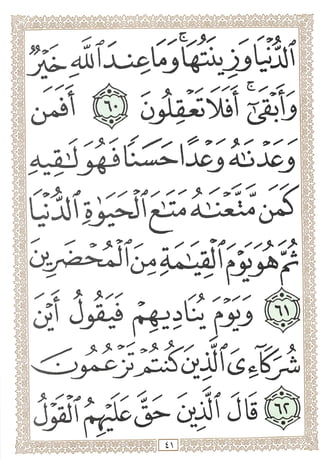 ٱلدُّنۡيَا وَزِينَتُهَاۚ وَمَا عِندَ ٱللَّهِ خَيۡرٞ
وَأَبۡقَىٰٓۚ أَفَلَا تَعۡقِلُونَ ٦٠ أَفَمَن
وَعَدۡنَٰهُ وَعۡدًا حَسَنٗا فَهُوَ لَٰقِيهِ
كَمَن مَّتَّعۡنَٰهُ مَتَٰعَ ٱلۡحَيَوٰةِ ٱلدُّنۡيَا
ثُمَّ هُوَ يَوۡمَ ٱلۡقِيَٰمَةِ مِنَ ٱلۡمُحۡضَرِينَ
٦١ وَيَوۡمَ يُنَادِيهِمۡ فَيَقُولُ أَيۡنَ
شُرَكَآءِيَ ٱلَّذِينَ كُنتُمۡ تَزۡعُمُونَ
٦٢ قَالَ ٱلَّذِينَ حَقَّ عَلَيۡهِمُ ٱلۡقَوۡلُ
٤١